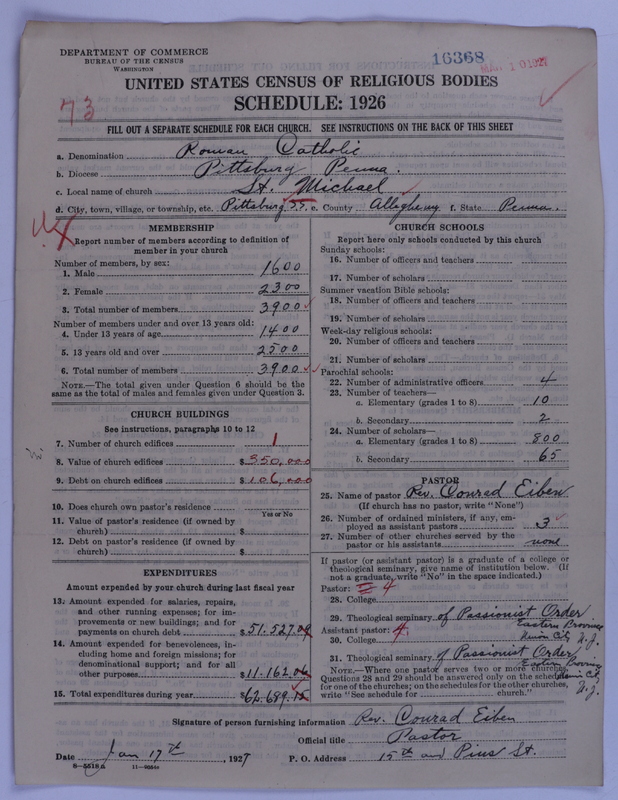 DEPARTMENT OF COMMERCE
BUREAU OF THE CENSUS
WASHINGTON
16368
MAR 10 1927
73
UNITED STATES CENSUS OF RELIGIOUS BODIES
SCHEDULE: 1926
FILL OUT A SEPARATE SCHEDULE FOR EACH CHURCH. SEE INSTRUCTIONS ON THE BACK OF THIS SHEET
a. Denomination Roman Catholic
b. Diocese Pittsburg Penna.
c. Local name of church St. Michael
d. City, town, village, or township, etc. Pittsburg S.S. e. County Allegheny f. State Penna.
MEMBERSHIP
Report number of members according to definition of
member in your church
Number of members, by sex:
1. Male 1600
2. Female 2300
3. Total number of members 3900
Number of members under and over 13 years old:
4. Under 13 years of age 1400
5. 13 years old and over 2500
6. Total number of members 3900
NOTE.—The total given under Question 6 should be the
same as the total of males and females given under Question 3.
CHURCH BUILDINGS
See instructions, paragraphs 10 to 12
7. Number of church edifices 1
8. Value of church edifices $350,000
9. Debt on church edifices $106,000
10. Does church own pastor's residence
Yes or No
11. Value of pastor's residence (if owned by
church) $
12. Debt on pastor's residence (if owned by
church) $
EXPENDITURES
Amount expended by your church during last fiscal year
13. Amount expended for salaries, repairs,
and other running expenses; for im-
provements or new buildings; and for
payments on church debt $51.527.09
14. Amount expended for benevolences, in-
cluding home and foreign missions; for
denominational support; and for all
other purposes $11.162.06
15. Total expenditures during year $62.689.15
CHURCH SCHOOLS
Report here only schools conducted by this church
Sunday schools:
16. Number of officers and teachers
17. Number of scholars
Summer vacation Bible schools:
18. Number of officers and teachers
19. Number of scholars
Week-day religious schools:
20. Number of officers and teachers
21. Number of scholars
Parochial schools:
22. Number of administrative officers 4
23. Number of teachers—
a. Elementary (grades 1 to 8) 10
b. Secondary 2
24. Number of scholars—
a. Elementary (grades 1 to 8) 800
b. Secondary 65
PASTOR
25. Name of pastor Rev. Conrad Eiben
(If church has no pastor, write "None")
26. Number of ordained ministers, if any, em-
ployed as assistant pastors 3
27. Number of other churches served by the
pastor or his assistants none
If pastor (or assistant pastor) is a graduate of a college or
theological seminary, give name of institution below. (If
not a graduate, write "No" in the space indicated.)
Pastor: 4
28. College
29. Theological seminary of Passionist Order
Eastern Province
Assistant pastor: 4
Union City N.J.
30. College
31. Theological seminary of Passionist Order
Eastern Province
Union City
N.J.
NOTE.—Where one pastor serves two or more churches,
Questions 28 and 29 should be answered only on the schedule
for one of the churches; on the schedules for the other churches,
write "See schedule for church."
Signature of person furnishing information Rev. Conrad Eiben
Official title Pastor
Date Jan 17th, 1927 P. O. Address 15th and Pius St.
8-5518a 11-9554